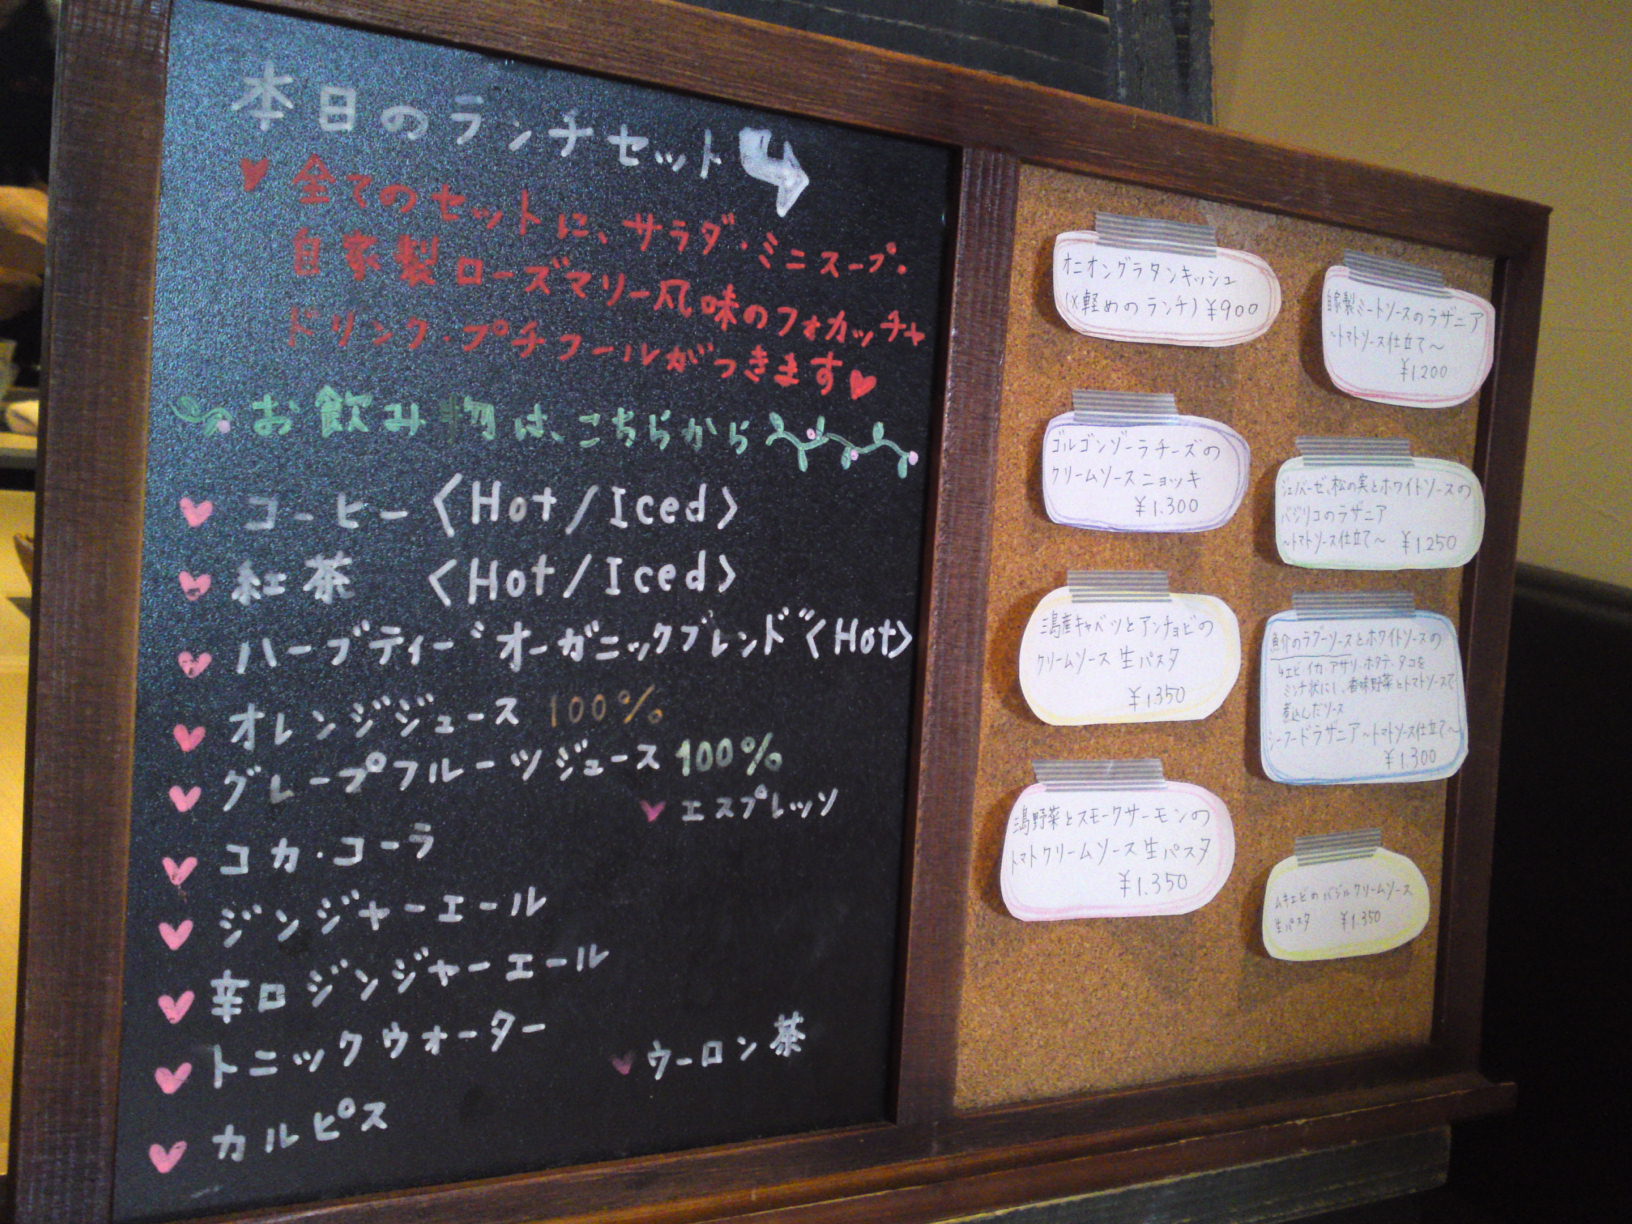 本日のランチセット
全てのセットに、サラダ・ミニスープ・
自家製ローズマリー風味のフォカッチャ
ドリンク・プチフールがつきます
お飲み物は、こちらから
コーヒー〈Hot/Iced〉
紅茶 〈Hot/Iced〉
ハーブティー"オーガニックブレンド"〈Hot〉
オレンジジュース 100%
グレープフルーツジュース 100%
エスプレッソ
コカ・コーラ
ジンジャーエール
辛口ジンジャーエール
トニックウォーター
ウーロン茶
カルピス
オニオングラタンキッシュ
(※軽めのランチ)¥900
ゴルゴンゾーラチーズの
クリームソースニョッキ
¥1.300
三島産キャベツとアンチョビの
クリームソース 生パスタ
¥1.350
三島野菜とスモークサーモンの
トマトクリームソース生パスタ
¥1.350
自家製ミートソースのラザニア
～トマトソース仕立て～
¥1.200
ジェノバーゼ、松の実とホワイトソースの
バジリコのラザニア
～トマトソース仕立て～ ¥1.250
魚介のラグーソースとホワイトソースの
エビ、イカ、アサリ、ホタテ、タコを
ミンチ状にし、香味野菜とトマトソースで
煮込んだソース
シーフードラザニア～トマトソース仕立て～
¥1.300
ムキエビのバジルクリームソース
生パスタ ¥1.350